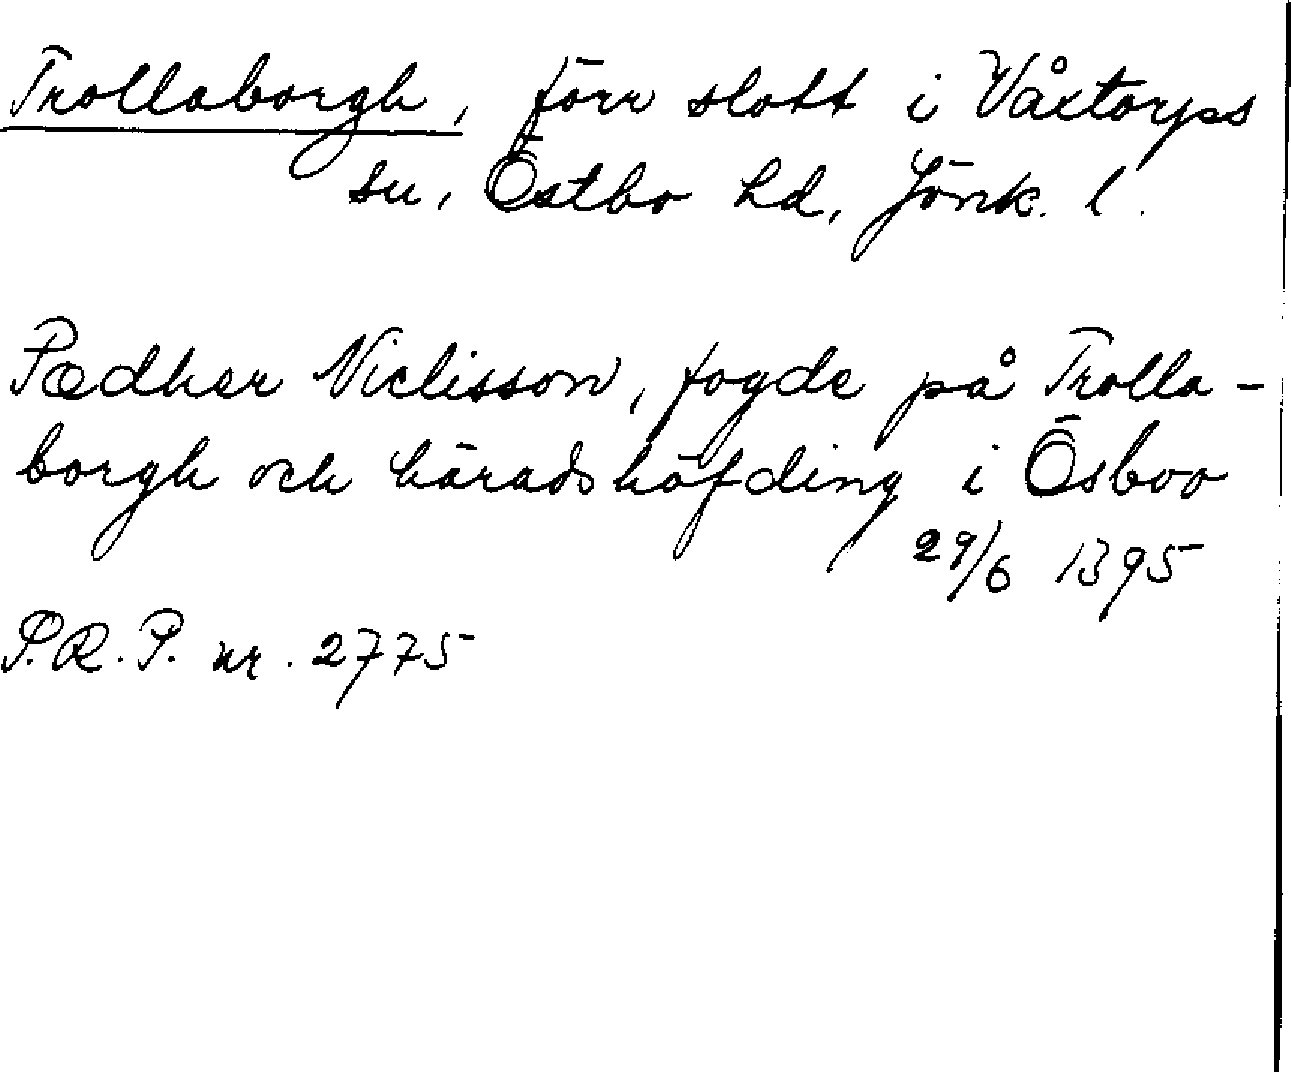 Trollaborgh, förr slott i Våxtorps
sn, Östbo hd, Jönk. l.
Pædher Niclisson, fogde på Trolla-
borgh och häradshöfding i Ösboo
29/6 1395
S.R.P. nr. 2775